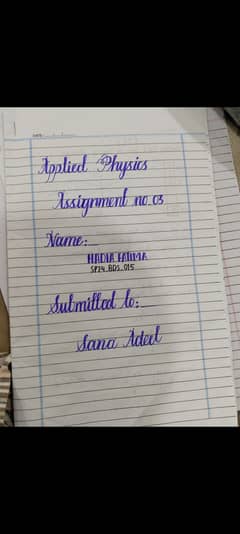 Applied Physics
Assignment no 03
Name:_
NADIA FATIMA
SP24_BDS_015
Submitted to:_
Sana Adeel